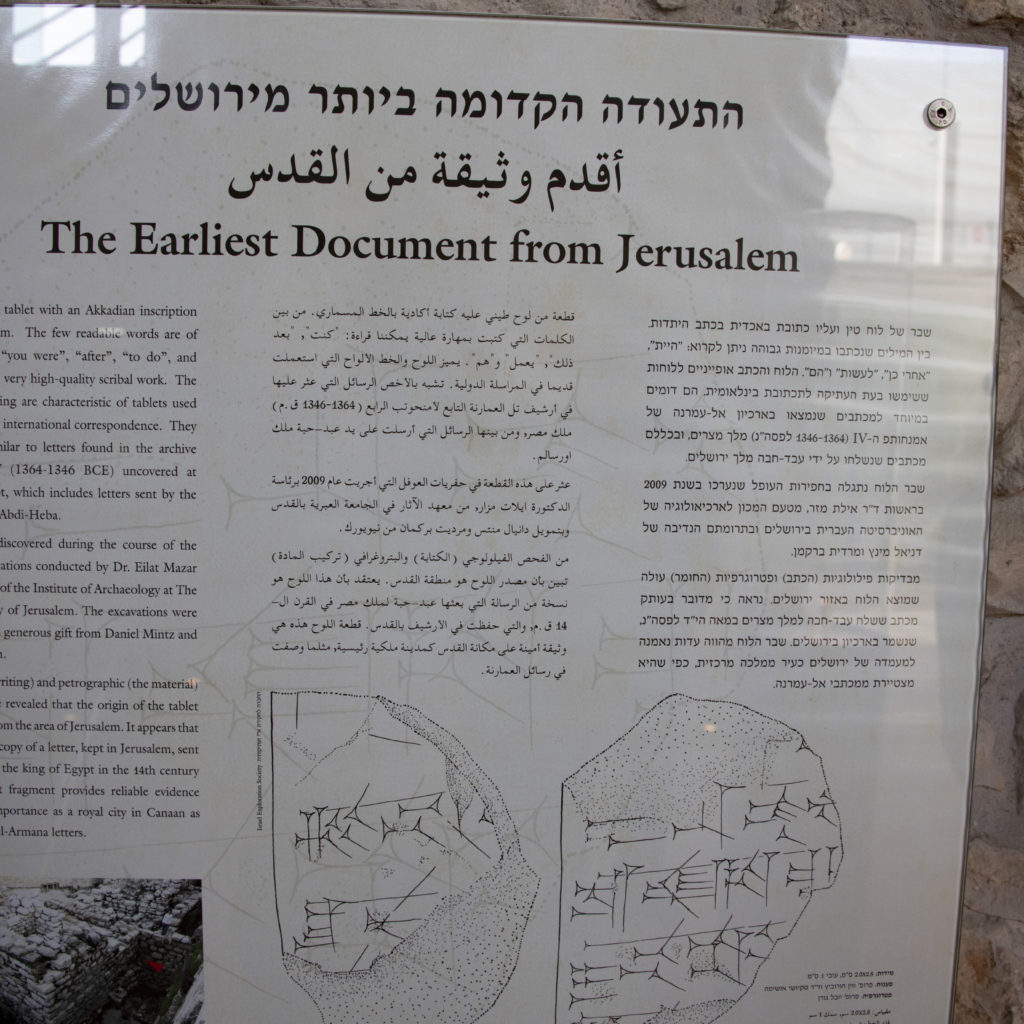 התעודה הקדומה ביותר מירושלים
أقدم وثيقة من القدس
The Earliest Document from Jerusalem
tablet with an Akkadian inscription
m. The few readable words are of
“you were”, “after”, “to do”, and
very high-quality scribal work. The
ing are characteristic of tablets used
international correspondence. They
milar to letters found in the archive
(1364-1346 BCE) uncovered at
t, which includes letters sent by the
Abdi-Heba.
discovered during the course of the
ations conducted by Dr. Eilat Mazar
of the Institute of Archaeology at The
y of Jerusalem. The excavations were
generous gift from Daniel Mintz and
n.
riting) and petrographic (the material)
revealed that the origin of the tablet
om the area of Jerusalem. It appears that
copy of a letter, kept in Jerusalem, sent
the king of Egypt in the 14th century
t fragment provides reliable evidence
mportance as a royal city in Canaan as
l-Armana letters.
قطعة من لوح طيني عليه كتابة أكادية بالخط المسماري. من بين
الكلمات التي كتبت بمهارة عالية يمكننا قراءة: "كنت", "بعد
ذلك", "يعمل" و"هم". يميز اللوح والخط الألواح التي استعملت
قديما في المراسلة الدولية. تشبه بالأخص الرسائل التي عثر عليها
في أرشيف تل العمارنة التابع لأمنحوتب الرابع (1364-1346 ق.م)
ملك مصر, ومن بينها الرسائل التي أرسلت على يد عبد-حبة ملك
اورسالم.
عثر على هذه القطعة في حفريات العوفل التي أجريت عام 2009 برئاسة
الدكتورة ايلات مزار, من معهد الآثار في الجامعة العبرية بالقدس
وبتمويل دانيال منتس ومرديت بركمان من نيويورك.
من الفحص الفيلولوجي (الكتابة) والبتروغرافي (تركيب المادة)
تبين بان مصدر اللوح هو منطقة القدس. يعتقد بان هذا اللوح هو
نسخة من الرسالة التي بعثها عبد-حبة لملك مصر في القرن ال-
14 ق.م, والتي حفظت في الارشيف بالقدس. قطعة اللوح هذه هي
وثيقة أمينة على مكانة القدس كمدينة ملكية رئيسية, مثلما وصفت
في رسائل العمارنة.
שבר של לוח טין ועליו כתובת באכדית בכתב היתדות.
בין המילים שנכתבו במיומנות גבוהה ניתן לקרוא: "היית",
"אחרי כן", "לעשות" ו"הם". הלוח והכתב אופייניים ללוחות
ששימשו בעת העתיקה לתכתובת בינלאומית. הם דומים
במיוחד למכתבים שנמצאו בארכיון אל-עמרנה של
אמנחותפ ה-IV (1346-1364 לפסה"נ) מלך מצרים, ובכללם
מכתבים שנשלחו על ידי עבד-חבה מלך ירושלים.
שבר הלוח נתגלה בחפירות העופל שנערכו בשנת 2009
בראשות ד"ר אילת מזר, מטעם המכון לארכיאולוגיה של
האוניברסיטה העברית בירושלים ובתרומתם הנדיבה של
דניאל מינץ ומרדית ברקמן.
מבדיקות פילולוגיות (הכתב) ופטרוגרפיות (החומר) עולה
שמוצא הלוח באזור ירושלים. נראה כי מדובר בעותק
מכתב ששלח עבד-חבה למלך מצרים במאה הי"ד לפסה"נ,
שנשמר בארכיון בירושלים. שבר הלוח מהווה עדות נאמנה
למעמדה של ירושלים כעיר ממלכה מרכזית, כפי שהיא
מצטיירת ממכתבי אל-עמרנה.
Israel Exploration Society
מידות: 2.0X2.8 ס"מ, עובי 1 ס"מ